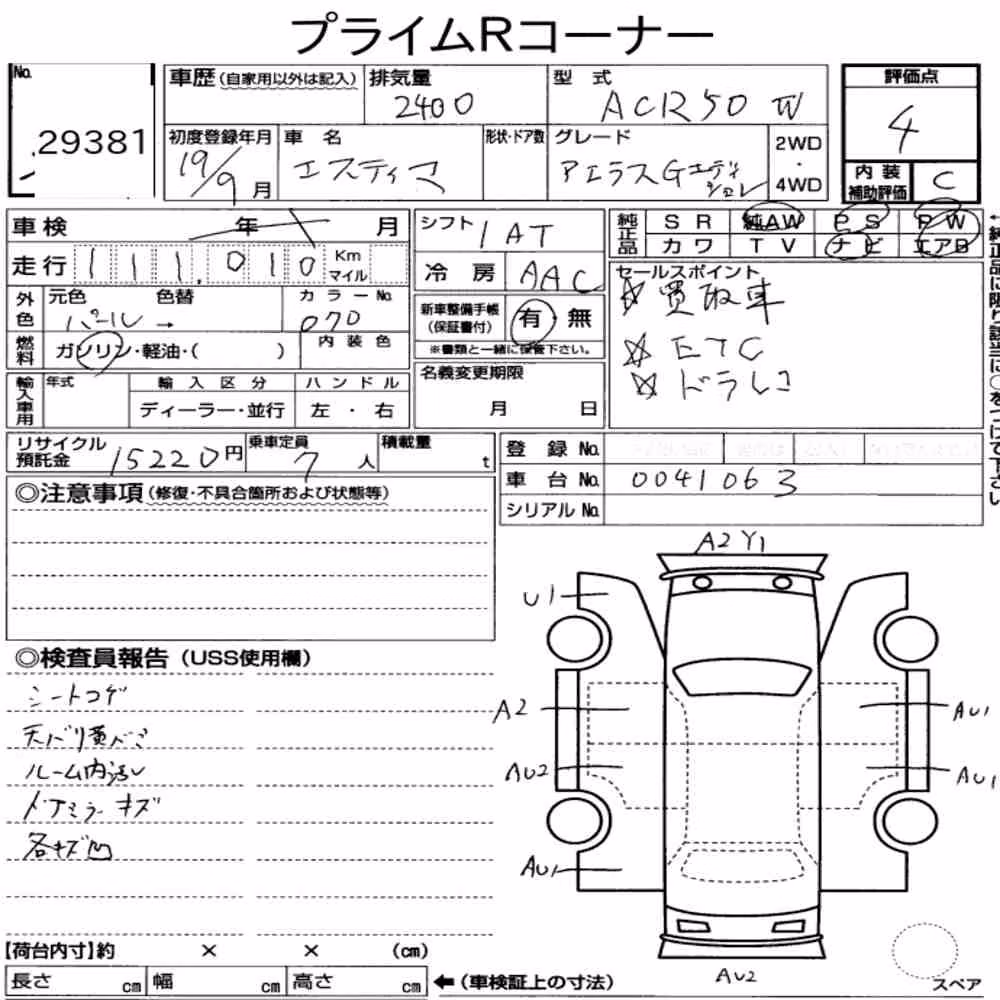 プライムRコーナー
No.
29381
車歴(自家用以外は記入)
排気量
2400
型式
ACR50 W
評価点
4
初度登録年月
19/9月
車名
エスティマ
形状・ドア数
グレード
アエラスGエディション
2WD
・
4WD
内装
補助評価
C
車検 年 月
走行 111,010 Km
マイル
シフト
IAT
冷房
AAC
純正品
SR 純AW PS PW
カワ TV ナビ エアB
セールスポイント
☆買取車
☆ETC
☆ドラレコ
←純正品に限り該当に○をつけて下さい
外色
元色 色替
パール→
カラーNo.
070
新車整備手帳
(保証書付)
有・無
※書類と一緒に保管下さい。
燃料
ガソリン・軽油・( )
内装色
輸入車用
年式
輸入区分
ハンドル
ディーラー・並行
左・右
名義変更期限
月 日
リサイクル
預託金
15220円
乗車定員
7人
積載量
t
登録No.
車台No.
0041063
シリアルNo.
◎注意事項(修復・不具合箇所および状態等)
A2 Y1
U1
◎検査員報告(USS使用欄)
シートコゲ
天バリ黄バミ
ルーム内汚レ
ドアミラーキズ
各キズ凹
A2
AU1
AU2
AU1
AU1
AU2
スペア
【荷台内寸】約 × × (cm)
長さ cm 幅 cm 高さ cm ←(車検証上の寸法)